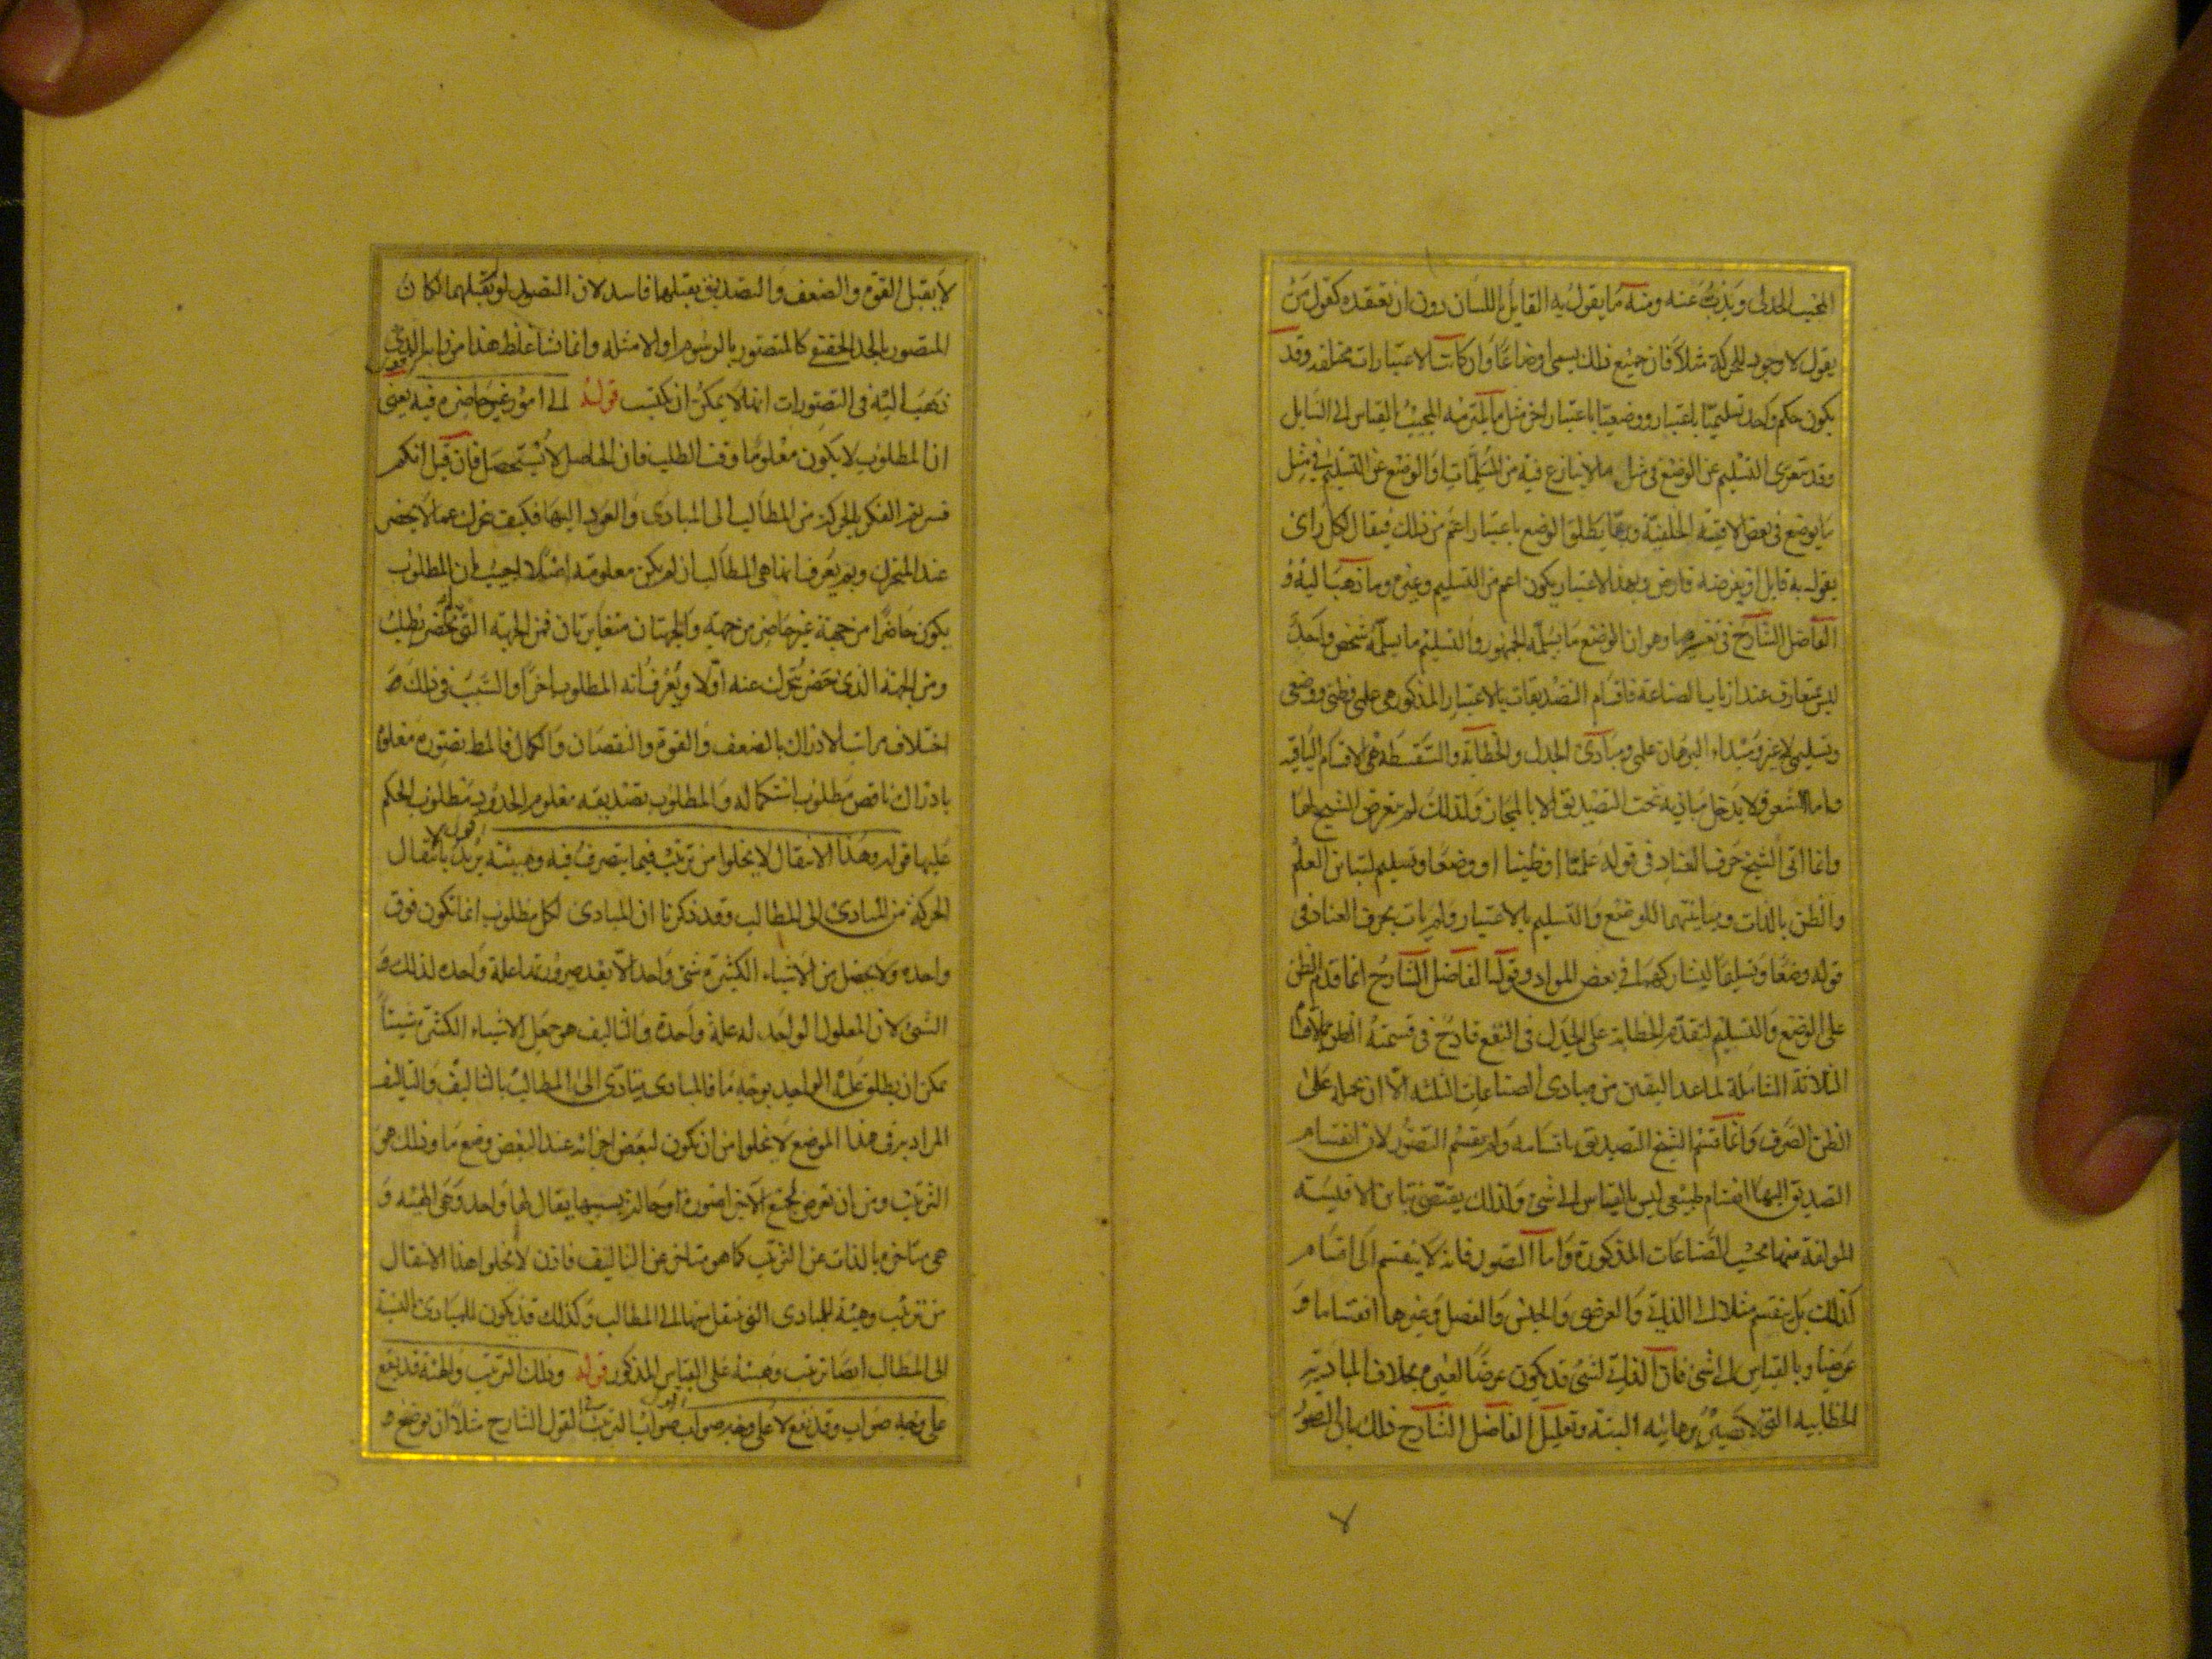 المجيب الجدلى ويذب عنه ومنه ما يقول به القايل باللسان دون ان يعتقده كقول من
يقول لا وجود للحركة مثلا فان جميع ذلك يسمى اوضاعا وان كانت لاعتبارات مختلفه وقد
يكون حكم واحد تسليميا باعتبار ووضعيا باعتبار اخر مثل ما يلتزمه المجيب بالقياس الى السايل
وقد يتعرى التسليم عن الوضع فى مثل ما لا ينازع فيه من المسلمات او الوضع عن التسليم فى مثل
ما يوضع فى بعض الاقيسة الخلفية وربما يطلق الوضع باعتبار اعم من ذلك فيقال لكل راى
يقول به قايل او يفرضه فارض وبهذا الاعتبار يكون اعم من التسليم وغيره وما ذهب اليه
الفاضل الشارح فى تفسيرهما وهو ان الوضع ما يسلمه الجمهور والتسليم ما يسلمه شخص واحد
ليس بمتعارف عند ارباب الصناعة فاقسام التصديقات بالاعتبار المذكور هى علمى وظنى ووضعى
وتسليمى لا غير ومبداء البرهان علمى ومبادى الجدل والخطابة والسفسطة هى الاقسام الباقيه
واما الشعر فلا يدخل مباديه تحت التصديق الا بالمجاز ولذلك لم يتعرض الشيخ لها
وانما اتى الشيخ بحرف العناد فى قوله علميا او ظنيا او وضعا وتسليم لتباين العلم
والظن بالذات ومباينتهما للوضع والتسليم بالاعتبار ولم يات بحرف العناد فى
قوله وضعا وتسليما لتشاركهما فى بعض المواد وقول الفاضل الشارح انما قدم الظن
على الوضع والتسليم لتقدم الخطابة على الجدل فى النفع قادح فى قسمته الظن
الثلاثة الشاملة لما عدا اليقين من مبادى الصناعات الثلثه الا ان يحمله على
الظن الصرف وانما قسم الشيخ التصديق باقسامه ولم يقسم التصور لان انقسام
التصديق اليها انقسام طبيعى ليس بالقياس الى شى ولذلك يقتضى تباين الاقيسة
المولفة منها بحسب الصناعات المذكورة واما التصور فانه لا ينقسم الى اقسام
كذلك بل ينقسم مثلا الى الذاتى والعرضى والجنس والفصل وغيرها انقساما
عرضيا وبالقياس الى شى فان الذاتى لشى قد يكون عرضيا لغيره بخلاف المادة
الخطابيه التى لا تصير برهانيه البتة وتعليل الفاضل الشارح ذلك بان التصور
لا يقبل القوة والضعف والتصديق يقبلهما فاسد لان التصور لو لم يقبلهما لكان
المتصور بالحد الحقيقى كالمتصور بالرسوم او الامثله وانما نشا غلطه هذا من رايه الذى
ذهب اليه فى التصورات انها لا يمكن ان تكتسب قوله الى امور غير حاضره فيه يعنى
ان المطلوب لا يكون معلوما وقت الطلب فان الحاصل لا يستحصل فان قيل انكم
فسرتم الفكر بالحركة من المطالب الى المبادى والعود اليها فكيف يتحرك عما لا يحضر
عند المتحرك وبم يعرف انها هى المطالب ان لم تكن معلومة اصلا اجيب بان المطلوب
يكون حاضرا من جهة غير حاضر من جهه والجهتان متغايرتان فمن الجهة التى لم يحضر يطلب
ومن الجهة الذى حضر يتحرك عنه اولا ويعرف انه المطلوب اخرا والسبب فى ذلك
اختلاف مراتب الادراك بالضعف والقوة والنقصان والكمال فالمط بتصوره معلوم
بادراك ناقص مطلوب استكماله والمطلوب تصديقه معلوم الحدود مطلوب الحكم
عليها قوله وهذا الانتقال لا يخلوا من ترتيب فيما يتصرف فيه وهيئة اقول يريد بالانتقال
الحركة من المبادى الى المطالب وقد ذكرنا ان المبادى لكل مطلوب انما تكون فوق
واحده ولا يحصل من الاشياء الكثيرة شى واحد الا بعد صيرورتها علة واحده لذلك
الشى لان المعلول الواحد له علة واحدة والتاليف هو جعل الاشياء الكثيرة شيئا
يمكن ان يطلق عليه الواحد بوجه ما فالمبادى يتادى الى المطالب بالتاليف والتاليف
المراد به فى هذا الموضع لا يخلوا من ان يكون لبعض اجزائه عند البعض وضع ما وذلك هو
الترتيب ومن ان تعرض لجميع الاجزا صورة او حالة بسببها يقال لها واحد وهى الهيئه
هى متاخره بالذات عن الترتيب كما هو متاخر عن التاليف فاذن لا يخلوا هذا الانتقال
من ترتيب وهيئة للمبادى التى ينتقل منها الى المطالب وكذلك قد يكون للمبادى
الى المطالب ايضا ترتيب وهيئة على القياس المذكور قوله وذلك الترتيب والهيئة قد يقع
على وجه صواب وقد يقع لا على وجه صواب اقول صواب الترتيب فى القول الشارح مثلا ان يوضع